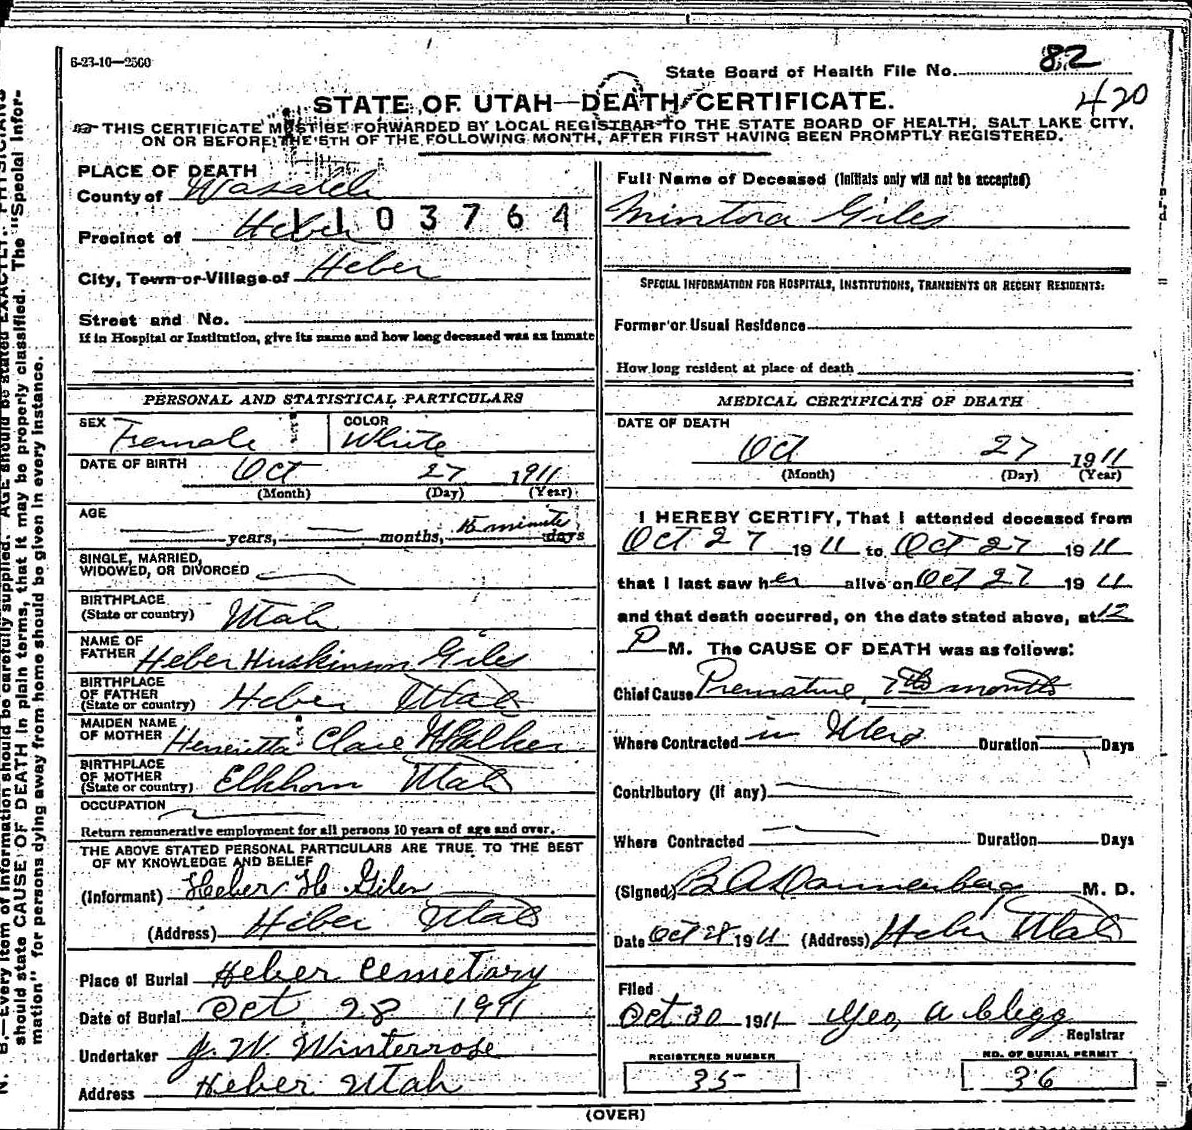 6-23-10—2500
State Board of Health File No. 82
420
STATE OF UTAH—DEATH CERTIFICATE.
THIS CERTIFICATE MUST BE FORWARDED BY LOCAL REGISTRAR TO THE STATE BOARD OF HEALTH, SALT LAKE CITY,
ON OR BEFORE THE 5TH OF THE FOLLOWING MONTH, AFTER FIRST HAVING BEEN PROMPTLY REGISTERED.
PLACE OF DEATH
County of Wasatch
1103764
Precinct of Heber
City, Town or Village of Heber
Street and No.
If in Hospital or Institution, give its name and how long deceased was an inmate
PERSONAL AND STATISTICAL PARTICULARS
SEX Female COLOR White
DATE OF BIRTH Oct 27 1911
(Month) (Day) (Year)
AGE
years, months, 15 minutes days
SINGLE, MARRIED,
WIDOWED, OR DIVORCED
BIRTHPLACE
(State or country) Utah
NAME OF
FATHER Heber Huskinson Giles
BIRTHPLACE
OF FATHER
(State or country) Heber Utah
MAIDEN NAME
OF MOTHER Henrietta Clare Walker
BIRTHPLACE
OF MOTHER
(State or country) Elkhorn Utah
OCCUPATION
Return remunerative employment for all persons 10 years of age and over.
THE ABOVE STATED PERSONAL PARTICULARS ARE TRUE TO THE BEST
OF MY KNOWLEDGE AND BELIEF
(Informant) Heber H. Giles
(Address) Heber Utah
Place of Burial Heber Cemetary
Date of Burial Oct 28 1911
Undertaker J. W. Winterrose
Address Heber Utah
Full Name of Deceased (Initials only will not be accepted)
Mintora Giles
SPECIAL INFORMATION FOR HOSPITALS, INSTITUTIONS, TRANSIENTS OR RECENT RESIDENTS:
Former or Usual Residence
How long resident at place of death
MEDICAL CERTIFICATE OF DEATH
DATE OF DEATH
Oct 27 1911
(Month) (Day) (Year)
I HEREBY CERTIFY, That I attended deceased from
Oct 27 1911 to Oct 27 1911
that I last saw her alive on Oct 27 1911
and that death occurred, on the date stated above, at 12
P M. The CAUSE OF DEATH was as follows:
Chief Cause Premature, 7th months
Where Contracted in Utero Duration Days
Contributory (if any)
Where Contracted Duration Days
(Signed) B A Dannenberg M. D.
Date Oct 28 1911 (Address) Heber Utah
Filed
Oct 30 1911 Geo, A Clegg
Registrar
REGISTERED NUMBER
35
NO. OF BURIAL PERMIT
36
(OVER)
N. B.—Every item of information should be carefully supplied. AGE should be stated EXACTLY. PHYSICIANS
should state CAUSE OF DEATH in plain terms, that it may be properly classified. The "Special Infor-
mation" for persons dying away from home should be given in every instance.